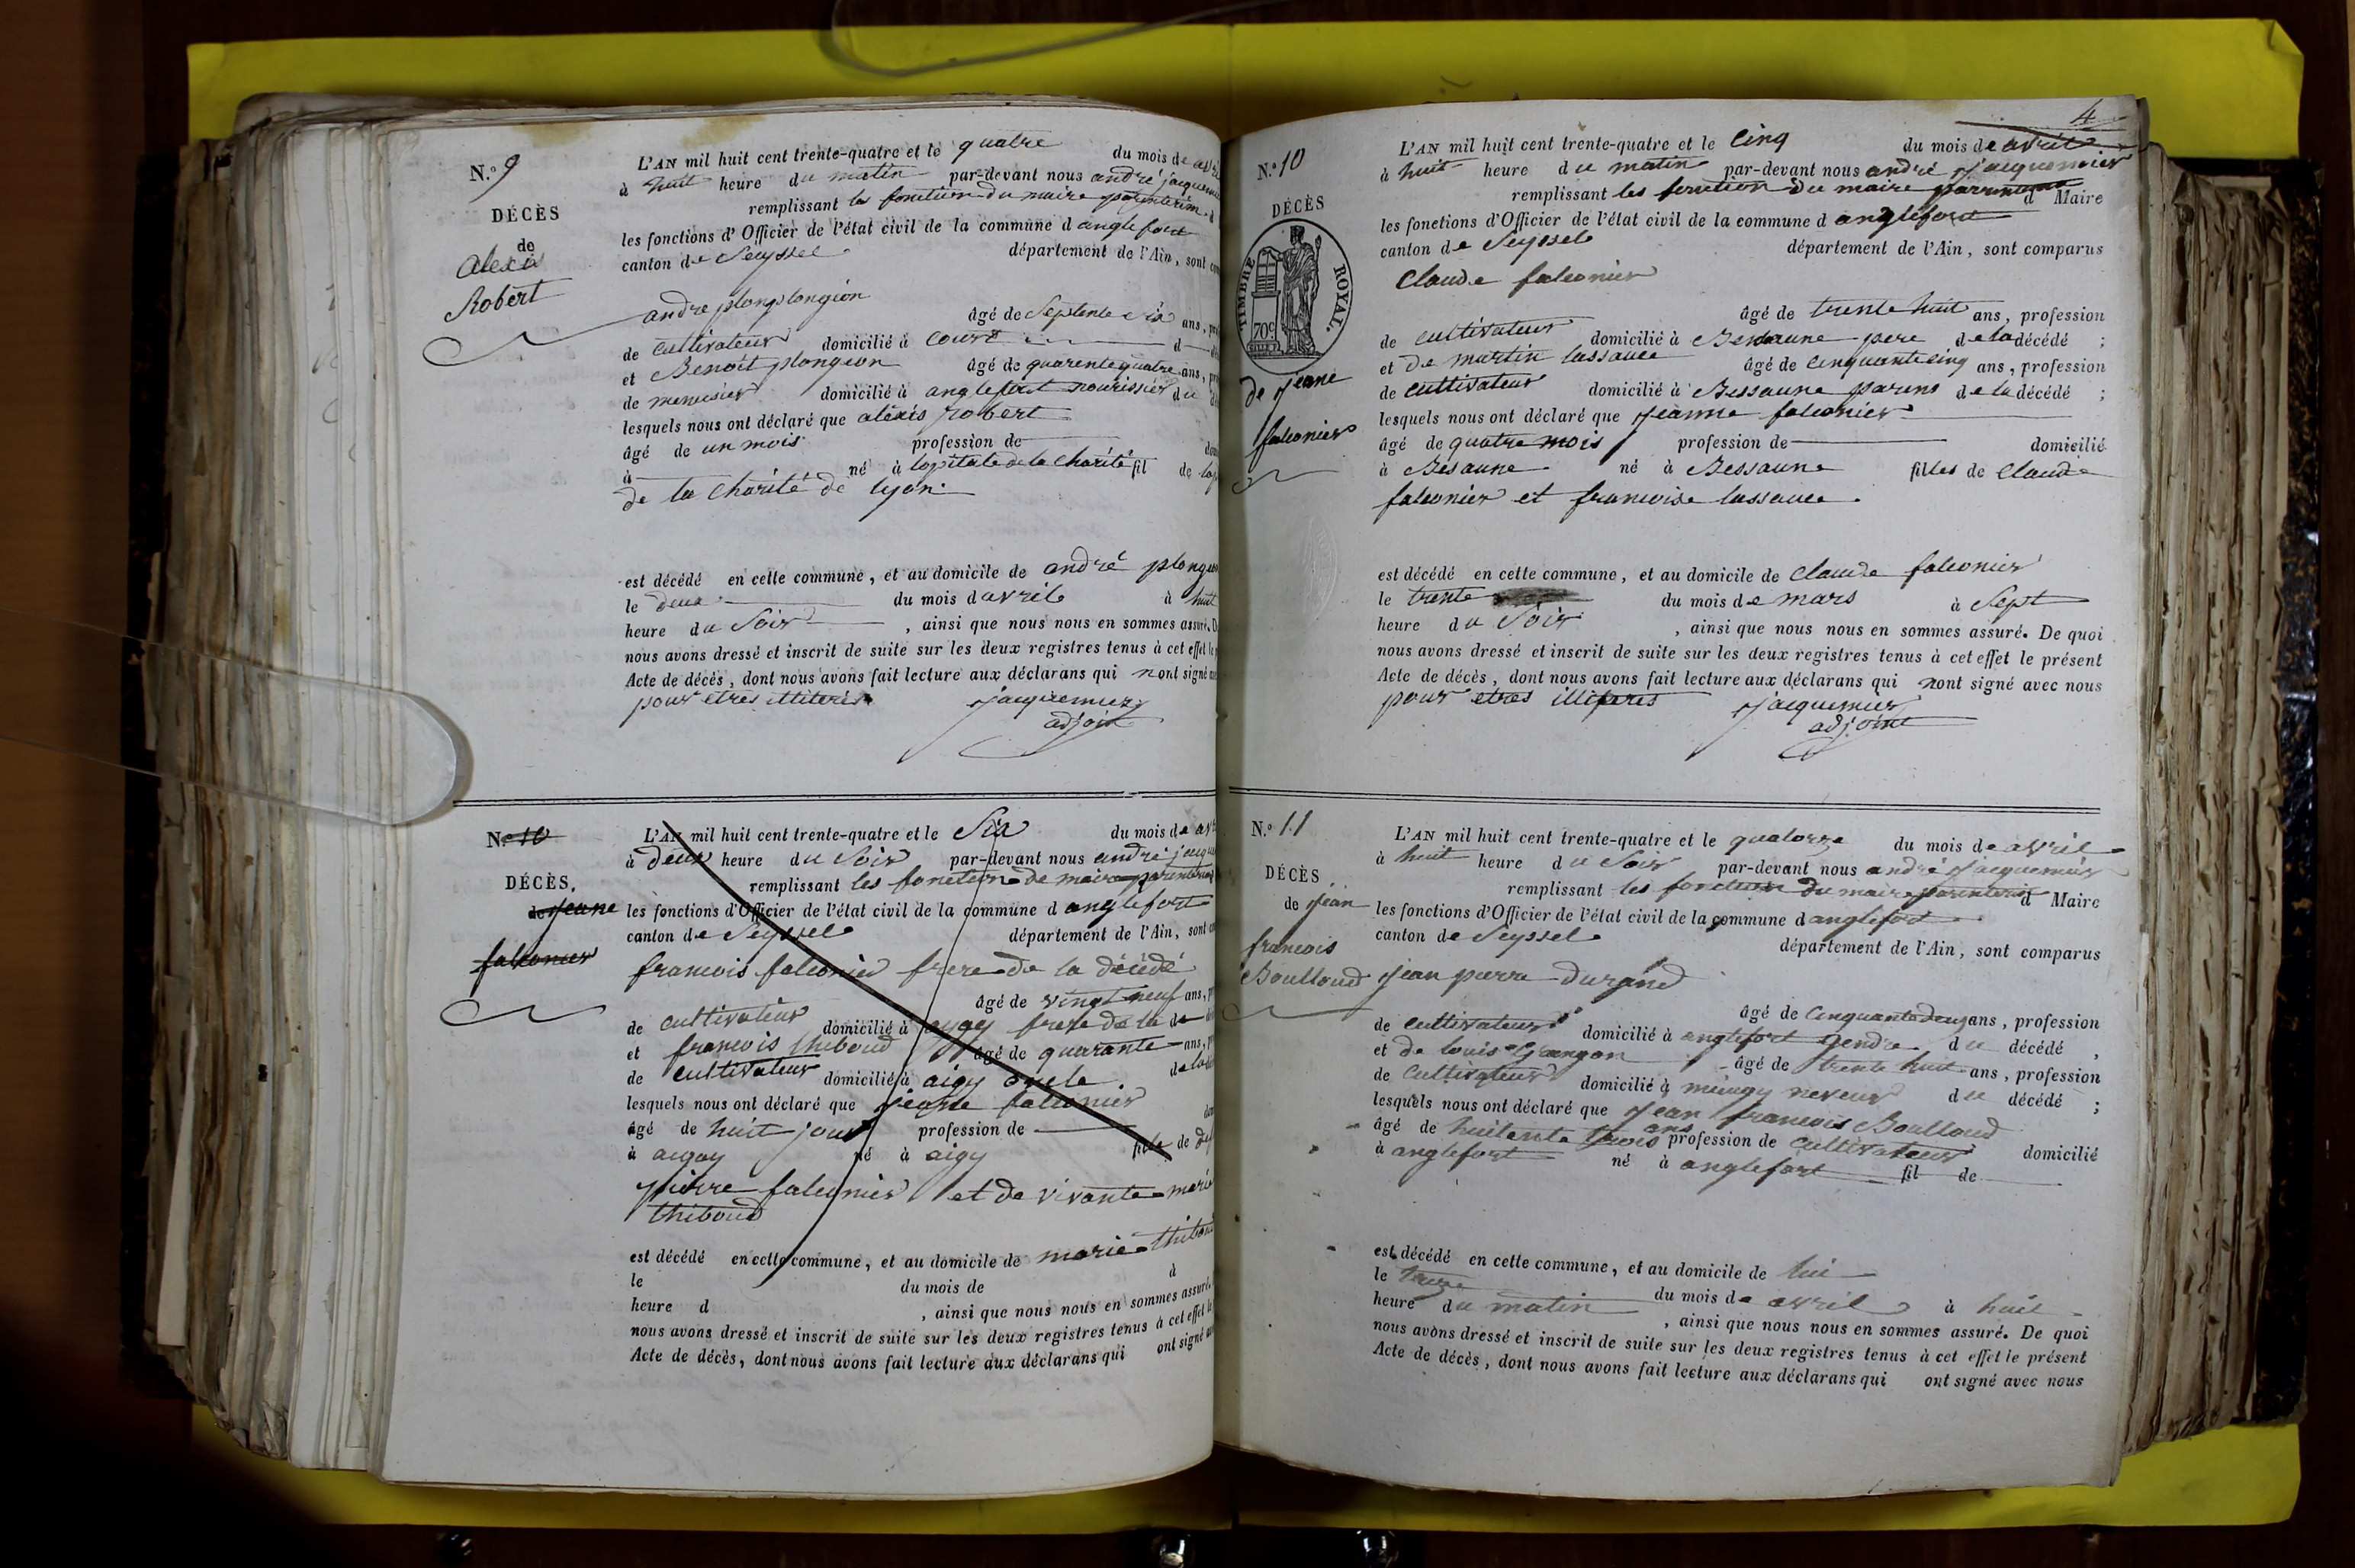 N.º 9
DÉCÈS
de
alexis
Robert
L'AN mil huit cent trente-quatre et le quatre du mois de
à huit heure du matin par-devant nous andré
remplissant les fonction du maire par interim
les fonctions d'Officier de l'état civil de la commune d anglefort
canton de Seyssel département de l'Ain, sont
andre plongion
âgé de Septente six ans,
de cultivateur domicilié à
et Benoit plongeon âgé de quarente quatre ans,
de menusier domicilié à anglefort nourissier du
lesquels nous ont déclaré que alexis robert
âgé de un mois profession de
à né à lopitale de la Charité fil de
de la Charité de lyon
est décédé en cette commune, et au domicile de andré
le deux du mois d avril à huit
heure du Soir, ainsi que nous nous en sommes assuré.
nous avons dressé et inscrit de suite sur les deux registres tenus à cet effet
Acte de décès, dont nous avons fait lecture aux déclarans qui nont signé
pour etres
jacquemier
adjoint
N.º 10
DÉCÈS,
de jeane
falconier
L'AN mil huit cent trente-quatre et le Six du mois de
à deux heure du Soir par-devant nous andré
remplissant les fonction de maire
les fonctions d'Officier de l'état civil de la commune d anglefort
canton de Seyssel département de l'Ain, sont
francois falconier frere de la décédé
âgé de vingt neuf ans,
de cultivateur domicilié à frere de la
et francois thiboud âgé de quarante ans,
de cultivateur domicilié à aigy oncle de la
lesquels nous ont déclaré que jeane falconier
âgé de huit jour profession de
à né à aigy de
pierre falconier et de vivante
thiboud
est décédé en cette commune, et au domicile de marie
le du mois de à
heure d, ainsi que nous nous en sommes assuré.
nous avons dressé et inscrit de suite sur les deux registres tenus à cet effet
Acte de décès, dont nous avons fait lecture aux déclarans qui ont signé
4
N.º 10
DÉCÈS
TIMBRE ROYAL.
70c
de jeane
falconier
L'AN mil huit cent trente-quatre et le Cinq du mois de avril
à huit heure du matin par-devant nous andré jacquemier
remplissant les fonction du maire d Maire
les fonctions d'Officier de l'état civil de la commune d anglefort
canton de Seyssel département de l'Ain, sont comparus
Claude falconier
âgé de trente huit ans, profession
de cultivateur domicilié à pere de la décédé ;
et de martin lassauce âgé de Cinquante cinq ans, profession
de cultivateur domicilié à Bessaune parens de la décédé ;
lesquels nous ont déclaré que jeanne falconier
âgé de quatre mois profession de domicilié
à Besaune né à Bessaune filles de Claude
falconier et francoise lassauce
est décédé en cette commune, et au domicile de Claude falconier
le trente du mois de mars à Sept
heure du Soir, ainsi que nous nous en sommes assuré. De quoi
nous avons dressé et inscrit de suite sur les deux registres tenus à cet effet le présent
Acte de décès, dont nous avons fait lecture aux déclarans qui nont signé avec nous
pour etres
jacquemier
adjoint
N.º 11
DÉCÈS
de jean
francois
Boulloud
L'AN mil huit cent trente-quatre et le quatorze du mois de avril
à huit heure du Soir par-devant nous andré jacquemier
remplissant les fonction du maire par interim d Maire
les fonctions d'Officier de l'état civil de la commune d anglefort
canton de Seyssel département de l'Ain, sont comparus
jean pierre durand
âgé de Cinquante deux ans, profession
de cultivateur domicilié à anglefort gendre du décédé ,
et de louis âgé de trente huit ans, profession
de Cultivateur domicilié à neveux du décédé ;
lesquels nous ont déclaré que jean francois Boulloud
âgé de huitente trois ans profession de cultivateur domicilié
à anglefort né à anglefort fil de
est décédé en cette commune, et au domicile de lui
le treize du mois de avril à huit
heure du matin, ainsi que nous nous en sommes assuré. De quoi
nous avons dressé et inscrit de suite sur les deux registres tenus à cet effet le présent
Acte de décès, dont nous avons fait lecture aux déclarans qui ont signé avec nous